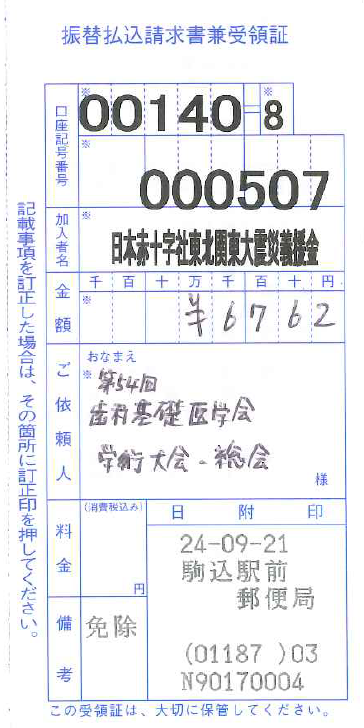 振替払込請求書兼受領証
口座記号番号
※
00140-8
※
※
000507
加入者名
※
日本赤十字社東北関東大震災義援金
金額
千百十万千百十円
※
¥6762
ご依頼人
おなまえ
※
第54回
歯科基礎医学会
学術大会-総会
様
料金
(消費税込み)
円
日附印
24-09-21
駒込駅前
郵便局
(01187 )03
N90170004
備考
免除
記載事項を訂正した場合は、その箇所に訂正印を押してください。
この受領証は、大切に保管してください。